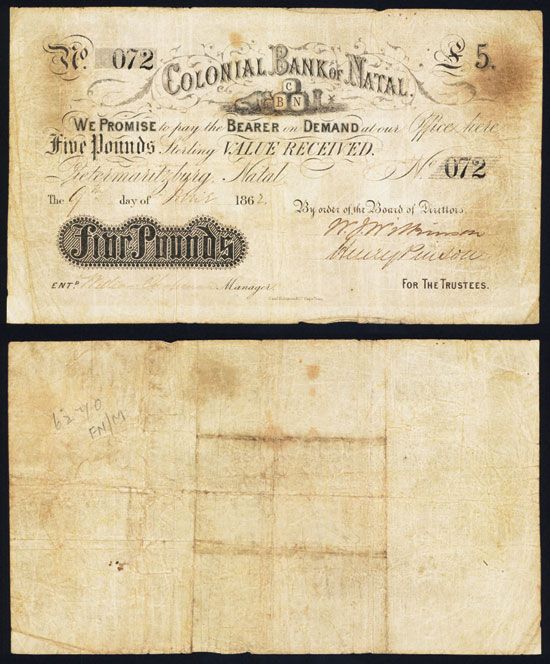 No. 072
COLONIAL BANK OF NATAL.
£ 5.
C
B N
WE PROMISE to pay the BEARER on DEMAND at our Office here
Five Pounds Sterling VALUE RECEIVED.
No 072
Pietermaritzburg, Natal
The 9th day of 1862
By order of the Board of Directors.
W. J. Wilkinson
Five Pounds
Henry Pinson
ENTD. William Manager.
FOR THE TRUSTEES.